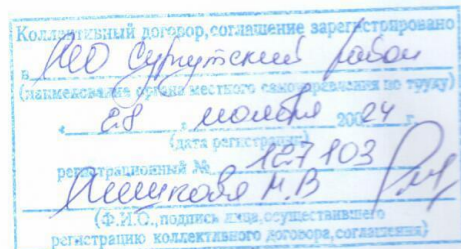 Коллективный договор, соглашение зарегистрировано
в МО Сургутский район
(наименование органа местного самоуправления по труду)
« 28 » ноября 20024 г.
(дата регистрации)
регистрационный № 127103
М.В
(Ф.И.О., подпись лица, осуществившего
регистрацию коллективного договора, соглашения)